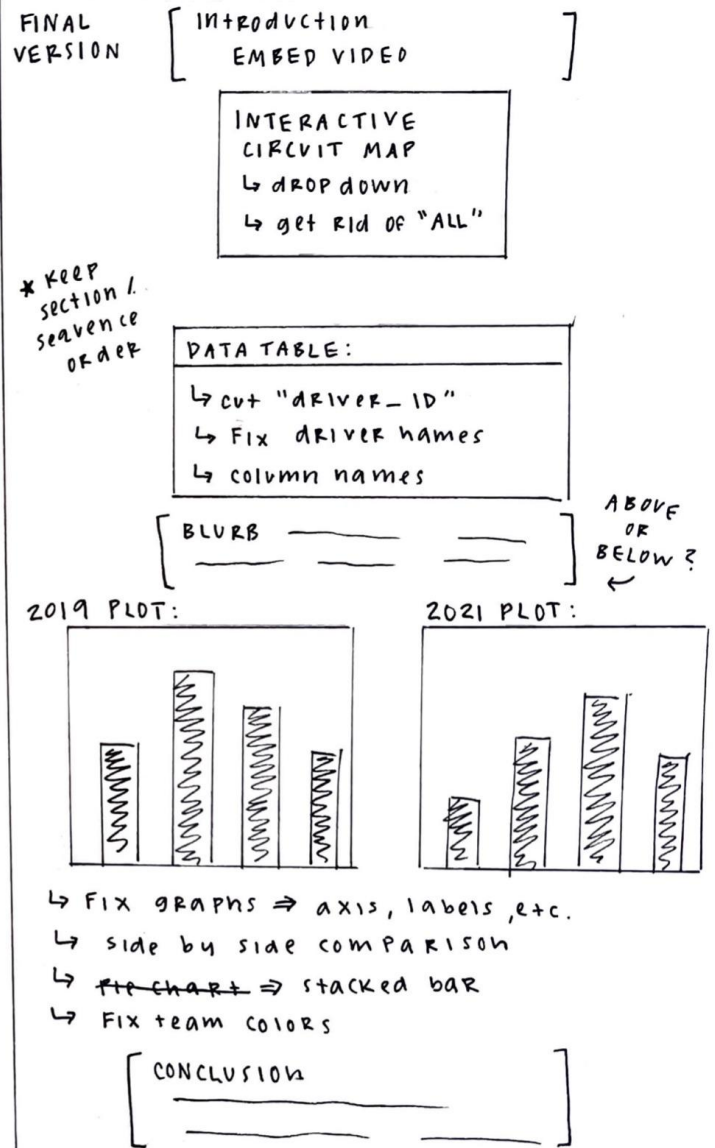 FINAL
VERSION
Introduction
EMBED VIDEO
INTERACTIVE
CIRCUIT MAP
↳ drop down
↳ get rid of "ALL"
* Keep
section /
seqvence
order
DATA TABLE:
↳ cut "driver_ID"
↳ Fix driver names
↳ column names
BLURB
ABOVE
OR
BELOW?
2019 PLOT:
2021 PLOT:
↳ Fix graphs ⇒ axis, labels, etc.
↳ side by side comparison
↳ pie chart ⇒ stacked bar
↳ Fix team colors
CONCLUSION